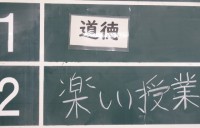 1 道徳
2 楽しい授業